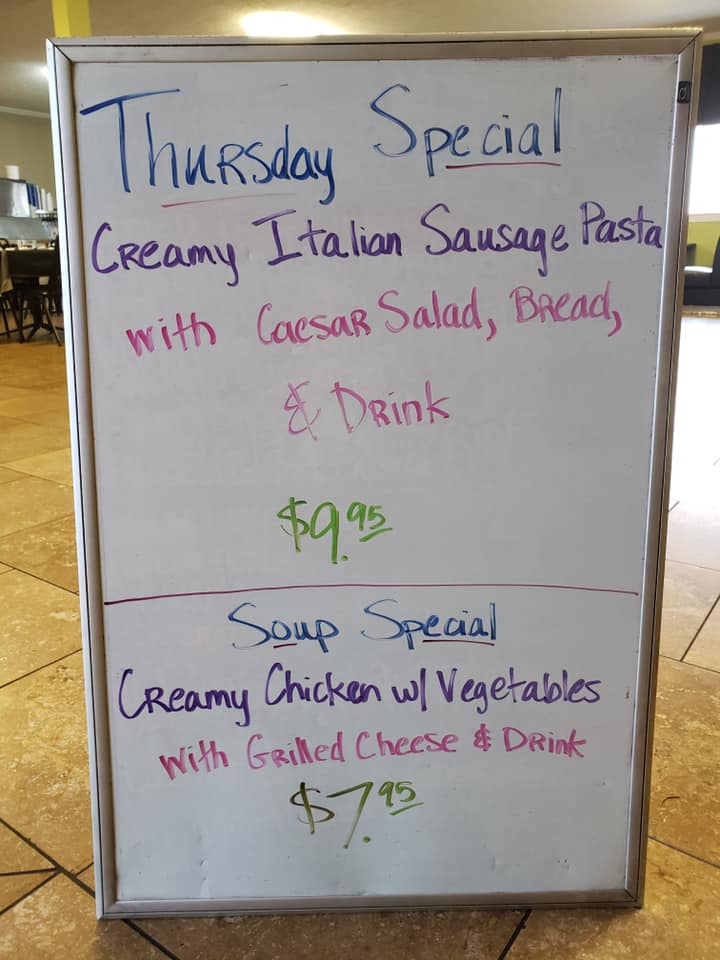 Thursday Special
Creamy Italian Sausage Pasta
with Caesar Salad, Bread,
& Drink
$9.95
Soup Special
Creamy Chicken w/ Vegetables
with Grilled Cheese & Drink
$7.95